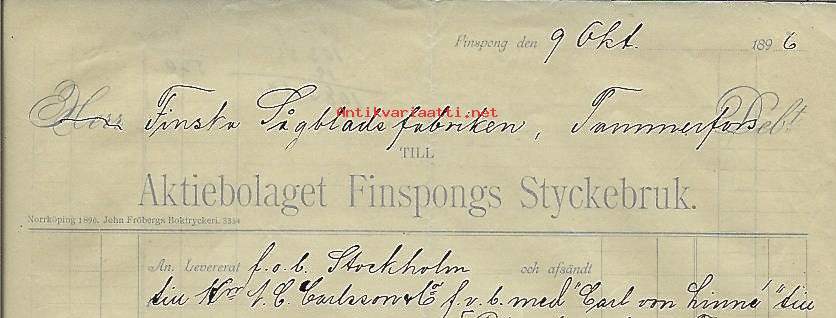 Finspong den 9 Okt. 1896
Antikvariaatti.net
Herr Finska Sågbladsfabriken, Tammerfors Debt
TILL
Aktiebolaget Finspongs Styckebruk.
Norrköping 1896. John Fröbergs Boktryckeri. 3354
An. Levererat f.o.b. Stockholm och afsändt
till Hrr N. C. Carlsson & Co f.v.b. med "Carl von Linné" till